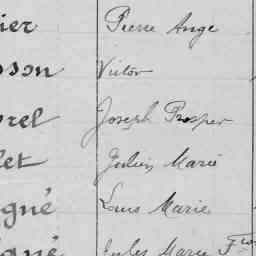 ier Pierre Ange
sson Victor
rel Joseph Prosper
let Julien Marie
gné Louis Marie
gné Jules Marie Fçois